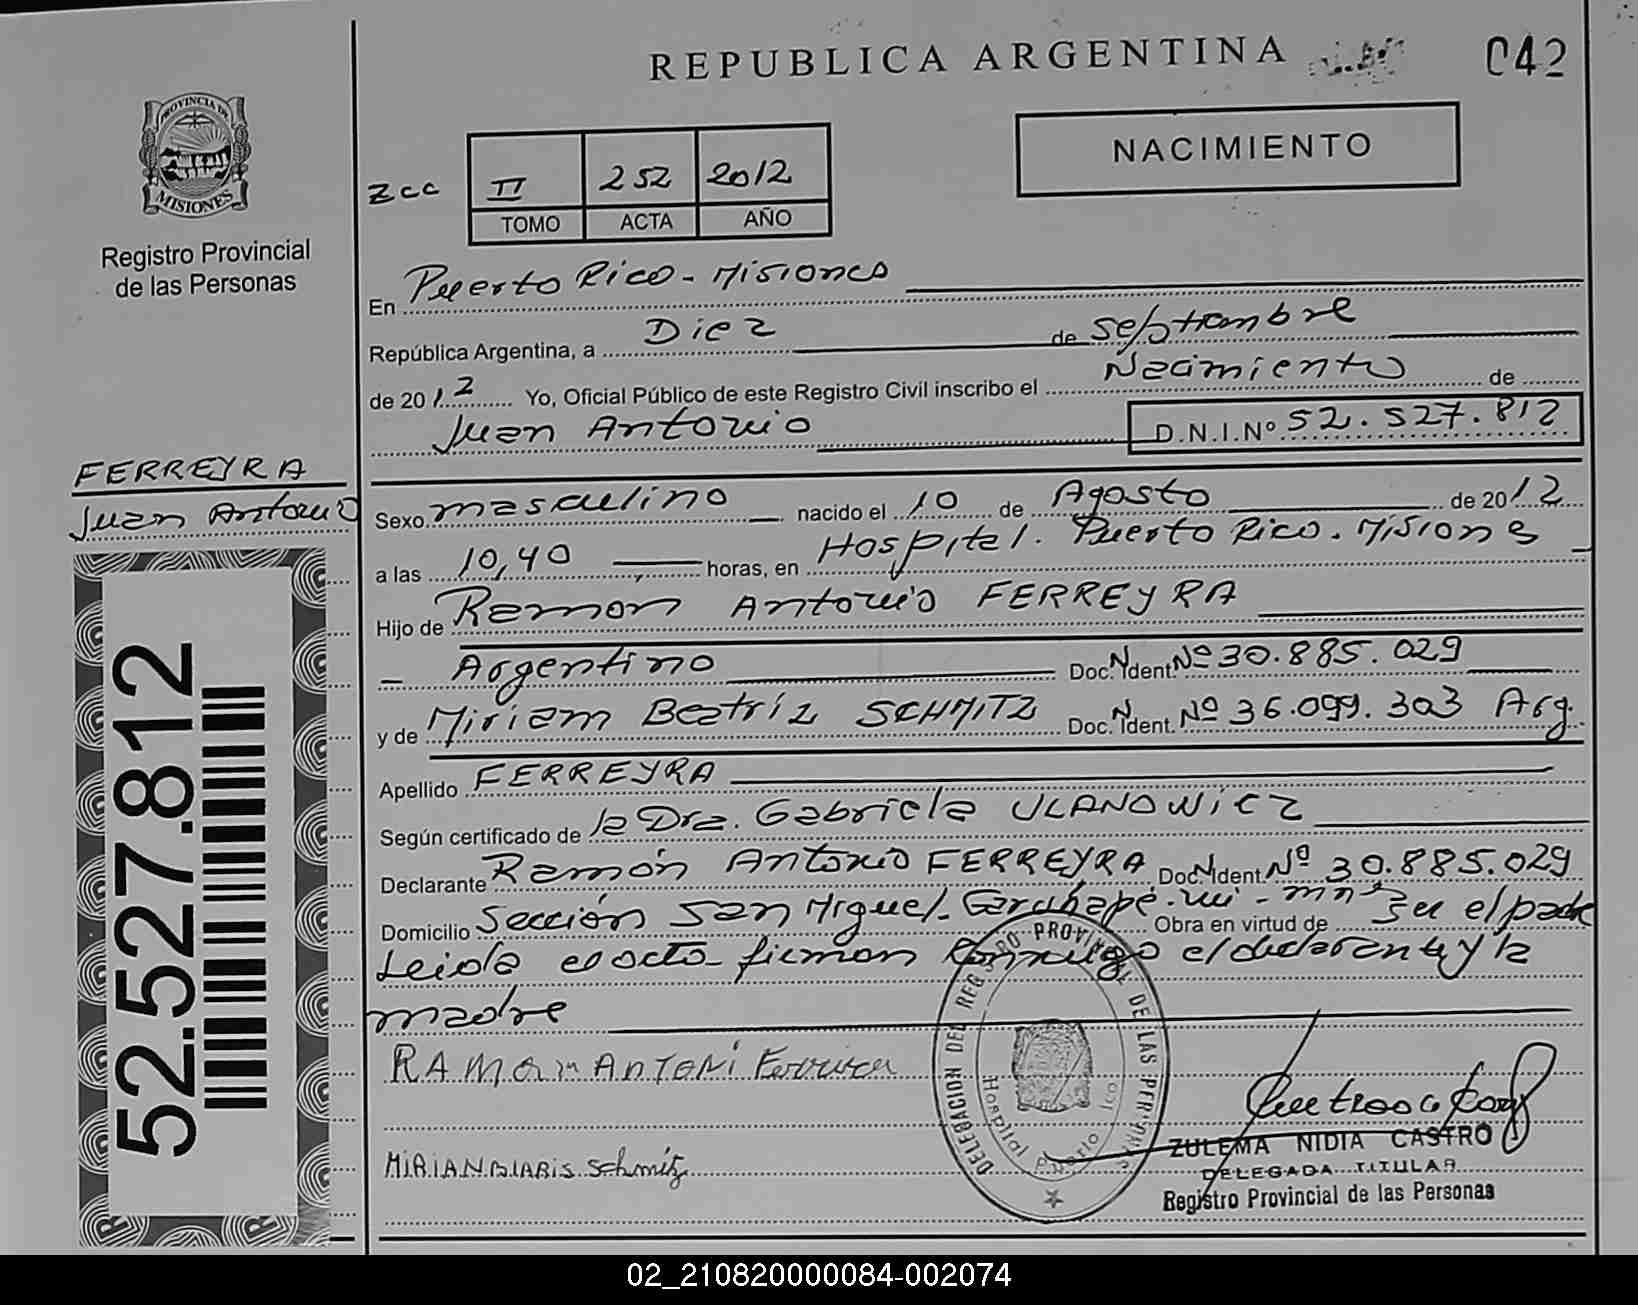 REPUBLICA ARGENTINA
042
PROVINCIA DE
MISIONES
Registro Provincial
de las Personas
NACIMIENTO
zcc II 252 2012
TOMO ACTA AÑO
En Puerto Rico - Misiones
República Argentina, a Diez de septiembre
de 2012 Yo, Oficial Público de este Registro Civil inscribo el Nacimiento de
Juan Antonio D.N.I.Nº 52.527.812
FERREYRA
Juan Antonio
Sexo masculino nacido el 10 de Agosto de 2012
a las 10,40 horas, en Hospital. Puerto Rico. Misiones
Hijo de Ramon Antonio FERREYRA
Argentino Doc. N. Ident. Nº 30.885.029
y de Miriam Beatriz SCHMITZ Doc. N. Ident. Nº 36.099.303 Arg.
Apellido FERREYRA
Según certificado de la Dra. Gabriela ULANOWICZ
Declarante Ramón Antonio FERREYRA Doc. N. Ident. Nº 30.885.029
Domicilio Sección San Miguel - Garuhapé - mi - mnes Obra en virtud de Ser el padre
Leida el acta firman conmigo el declarante y la
madre
RAMOm ANTONi Ferreira
MiRiAN BiARis Schmitz
52.527.812
DELEGACION DEL REGISTRO PROVINCIAL DE LAS PERSONAS
Hospital Puerto Rico
ZULEMA NIDIA CASTRO
DELEGADA TITULAR
Registro Provincial de las Personas
02_210820000084-002074